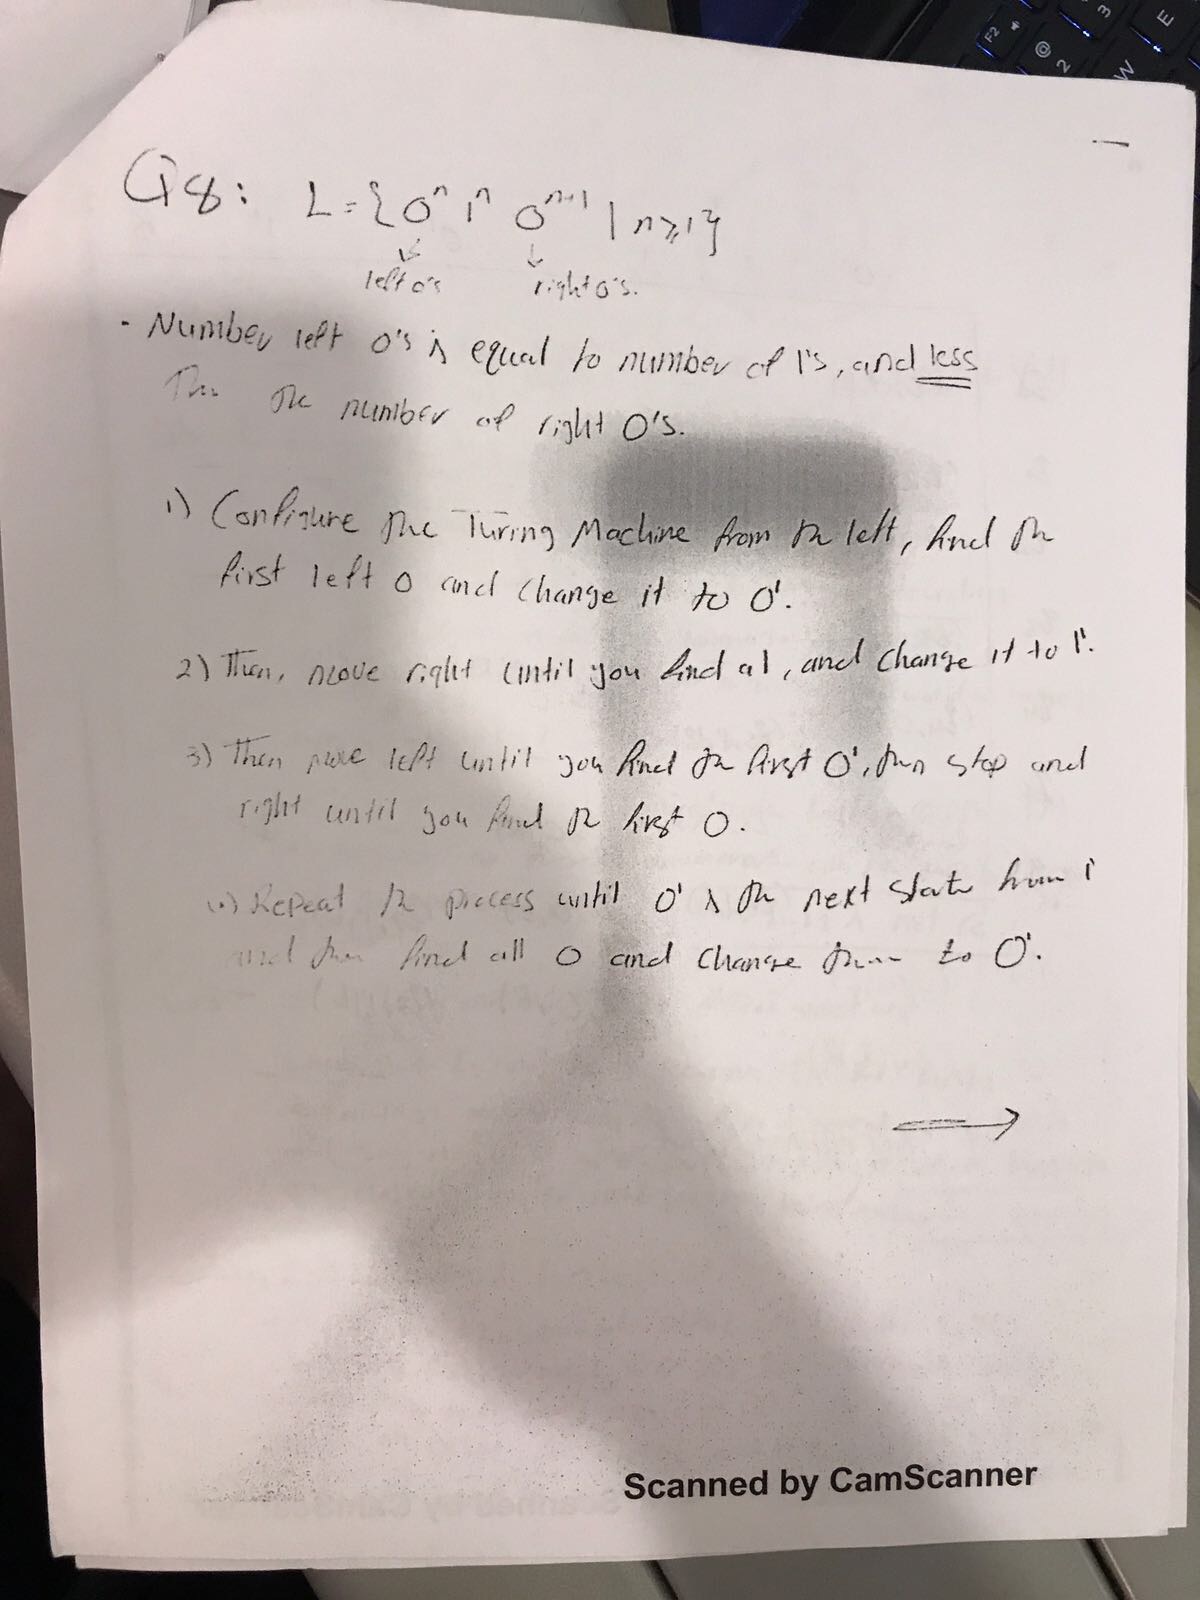 Q8: L = { 0ⁿ 1ⁿ 0ⁿ⁺¹ | n ≥ 1 }
left 0's right 0's.
- Number left 0's is equal to number of 1's, and less
the number of right 0's.
1) Configure the Turing Machine from the left, find the
first left 0 and change it to 0'.
2) Then, move right until you find a 1, and change it to 1'.
3) Then move left until you find the first 0', then stop and
right until you find the first 0.
Repeat the process until 0' is the next state from 1'
and then find all 0 and change them to 0'.
Scanned by CamScanner
F2
2
3
W
E